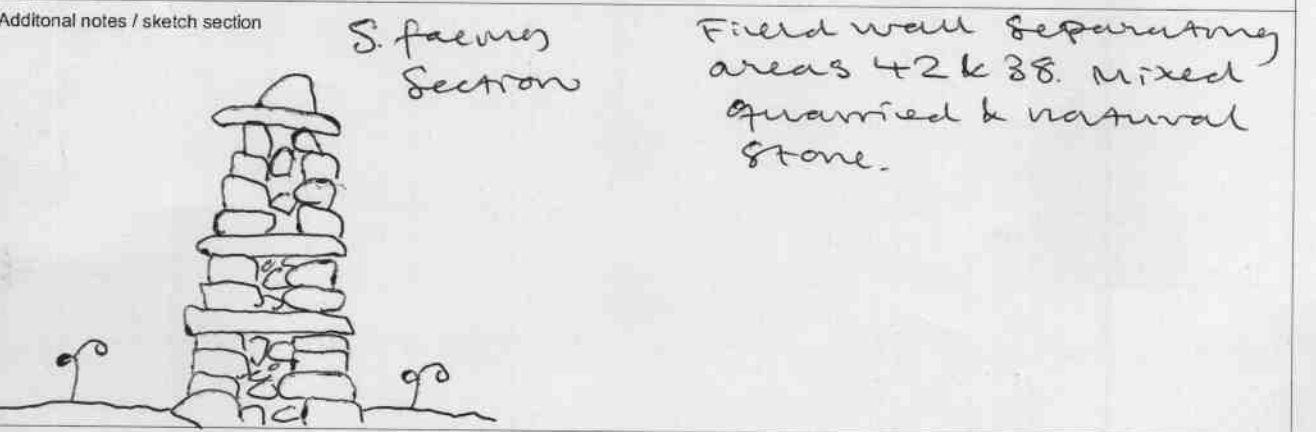 Additonal notes / sketch section
S. facing
Section
Field wall separating
areas 42 & 38. Mixed
quarried & natural
stone.